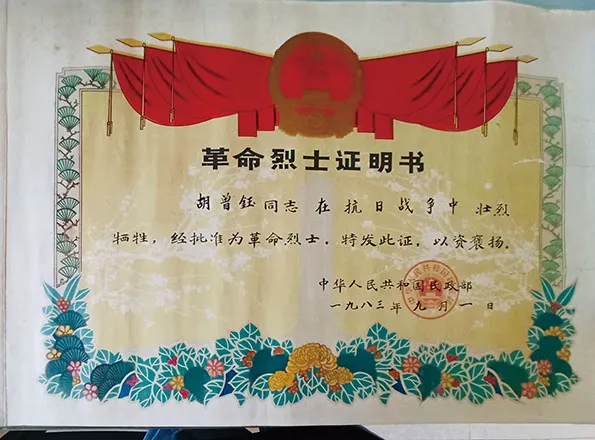 革命烈士证明书
胡曾钰同志在抗日战争中壮烈
牺牲，经批准为革命烈士。特发此证，以资褒扬。
中华人民共和国民政部
一九八三年九月一日